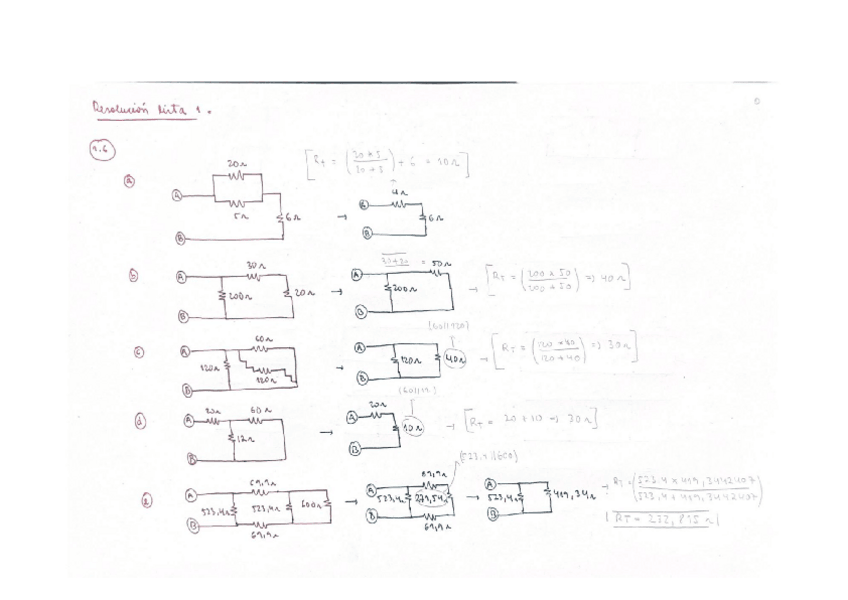 Resolución lista 1.
1.6
a
20Ω
5Ω
6Ω
A
B
→
4Ω
6Ω
A
B
+ 6 = 10Ω]
b
30Ω
200Ω
20Ω
A
B
→
30+20 = 50Ω
200Ω
A
B
→ [RT = (200 x 50 / 200 + 50) => 40Ω]
c
60Ω
120Ω
120Ω
A
B
→
(60//120)
120Ω
40Ω
A
B
→ [RT = (120 x 40 / 120 + 40) => 30Ω]
d
20Ω
60Ω
12Ω
A
B
→
(60//12)
20Ω
10Ω
A
B
→ [RT = 20 + 10 => 30Ω]
69,9Ω
523,4Ω
523,4Ω
600Ω
69,9Ω
A
B
→
(523,4//600)
69,9Ω
523,4Ω
279,54Ω
69,9Ω
A
B
→
523,4Ω
419,34Ω
A
B
→ RT = (523,4 x 419,3442407 / 523,4 + 419,3442407)
RT = 232,815Ω